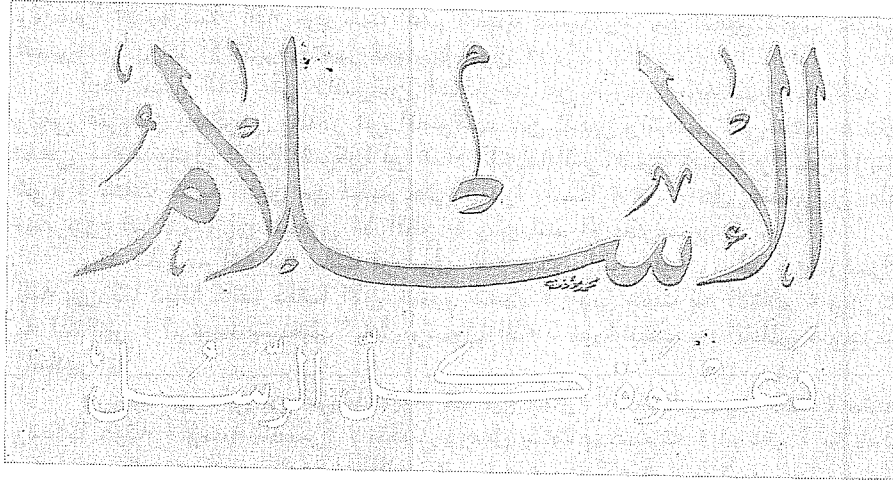 الإسلام
دعوة كل الرسل